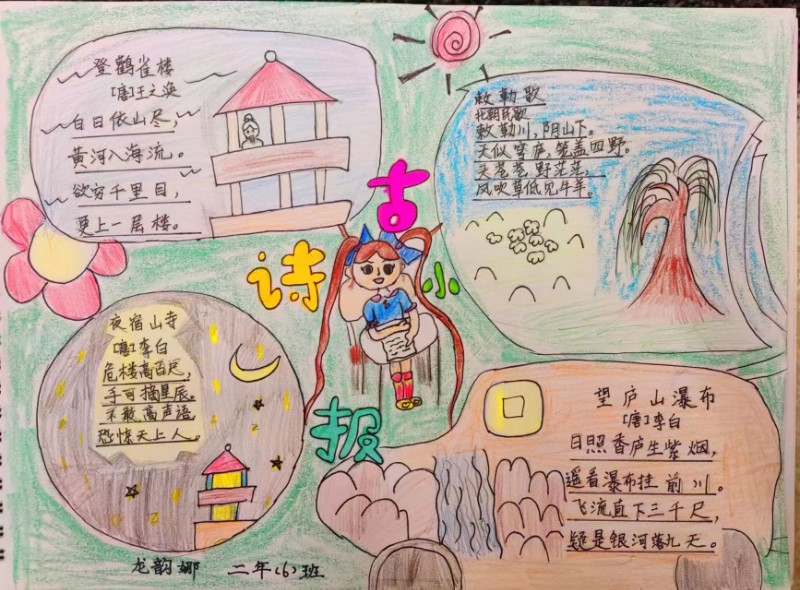 登鹳雀楼
[唐]王之涣
白日依山尽,
黄河入海流。
欲穷千里目,
更上一层楼。
敕勒歌
北朝民歌
敕勒川,阴山下。
天似穹庐,笼盖四野。
天苍苍,野茫茫,
风吹草低见牛羊。
古
诗
小
报
夜宿山寺
[唐]李白
危楼高百尺,
手可摘星辰。
不敢高声语
恐惊天上人。
望庐山瀑布
[唐]李白
日照香庐生紫烟,
遥看瀑布挂前川。
飞流直下三千尺,
疑是银河落九天。
龙韵娜 二年(6)班